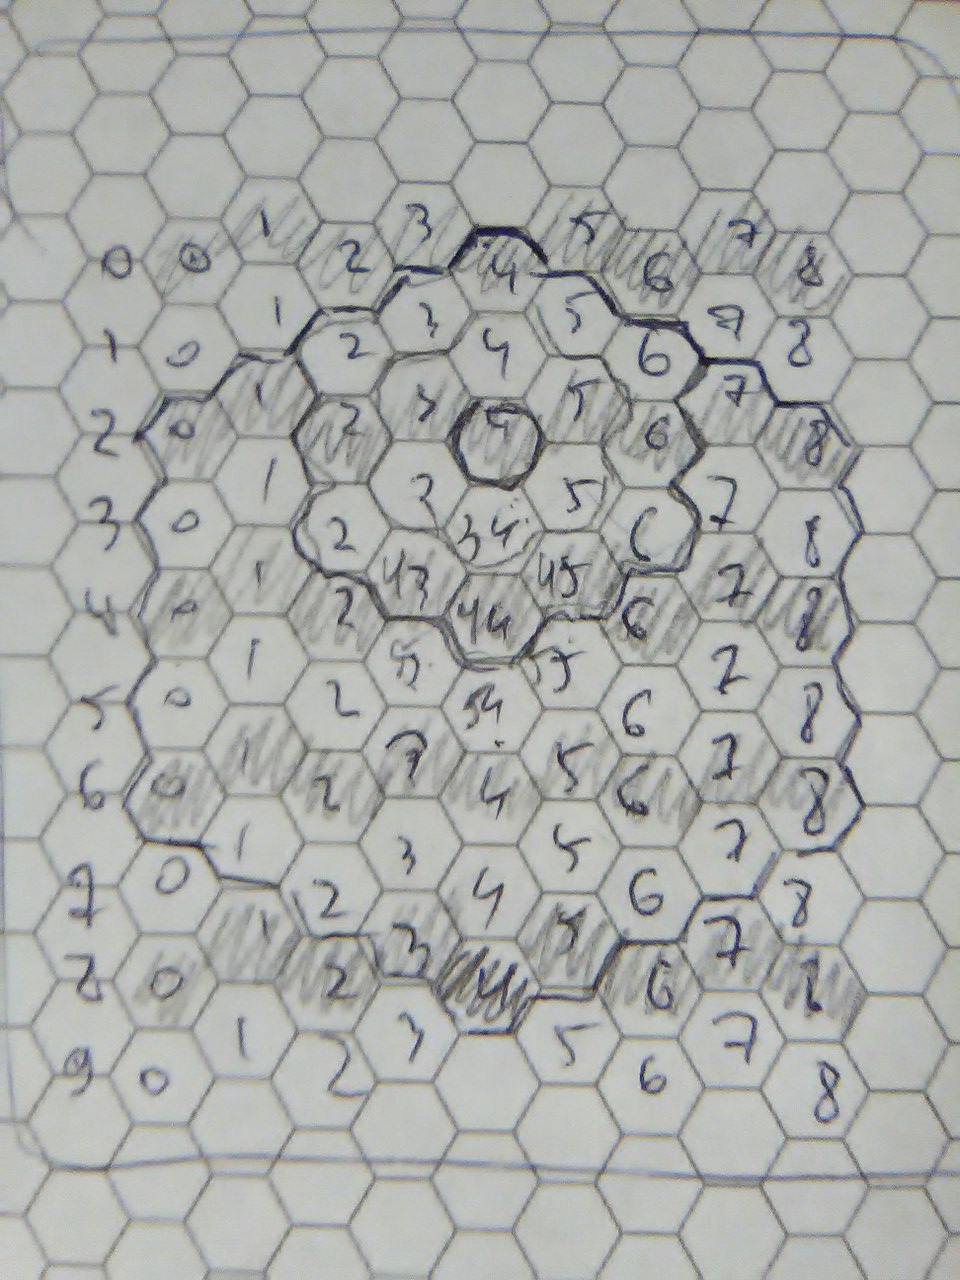 0 0 1 2 3 4 5 6 7 8
1 0 1 2 3 4 5 6 7 8
2 0 1 2 3 4 5 6 7 8
3 0 1 2 3 34 5 6 7 8
4 0 1 2 43 44 45 6 7 8
5 0 1 2 54 6 7 8
6 0 1 2 4 5 6 7 8
7 0 1 2 3 4 5 6 7 8
0 1 2 3 4 5 6 7 8
9 0 1 2 3 5 6 7 8